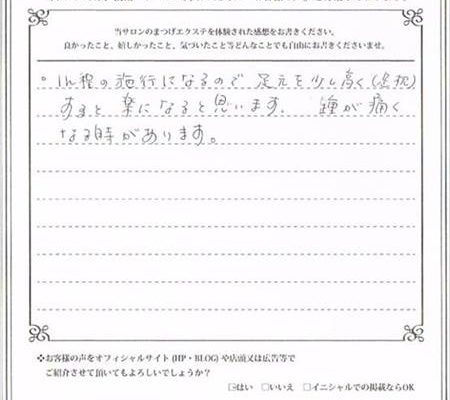 当サロンのまつげエクステを体験された感想をお書きください。
良かったこと、嬉しかったこと、気づいたこと等どんなことでも自由にお書きくださいませ。
。1h程の施行になるので 足元を少し高く(足枕)
すると 楽になると思います. 踵が痛く
なる時があります。
❖お客様の声をオフィシャルサイト(HP・BLOG)や店頭又は広告等で
ご紹介させて頂いてもよろしいでしょうか？
☑はい □いいえ □イニシャルでの掲載ならOK